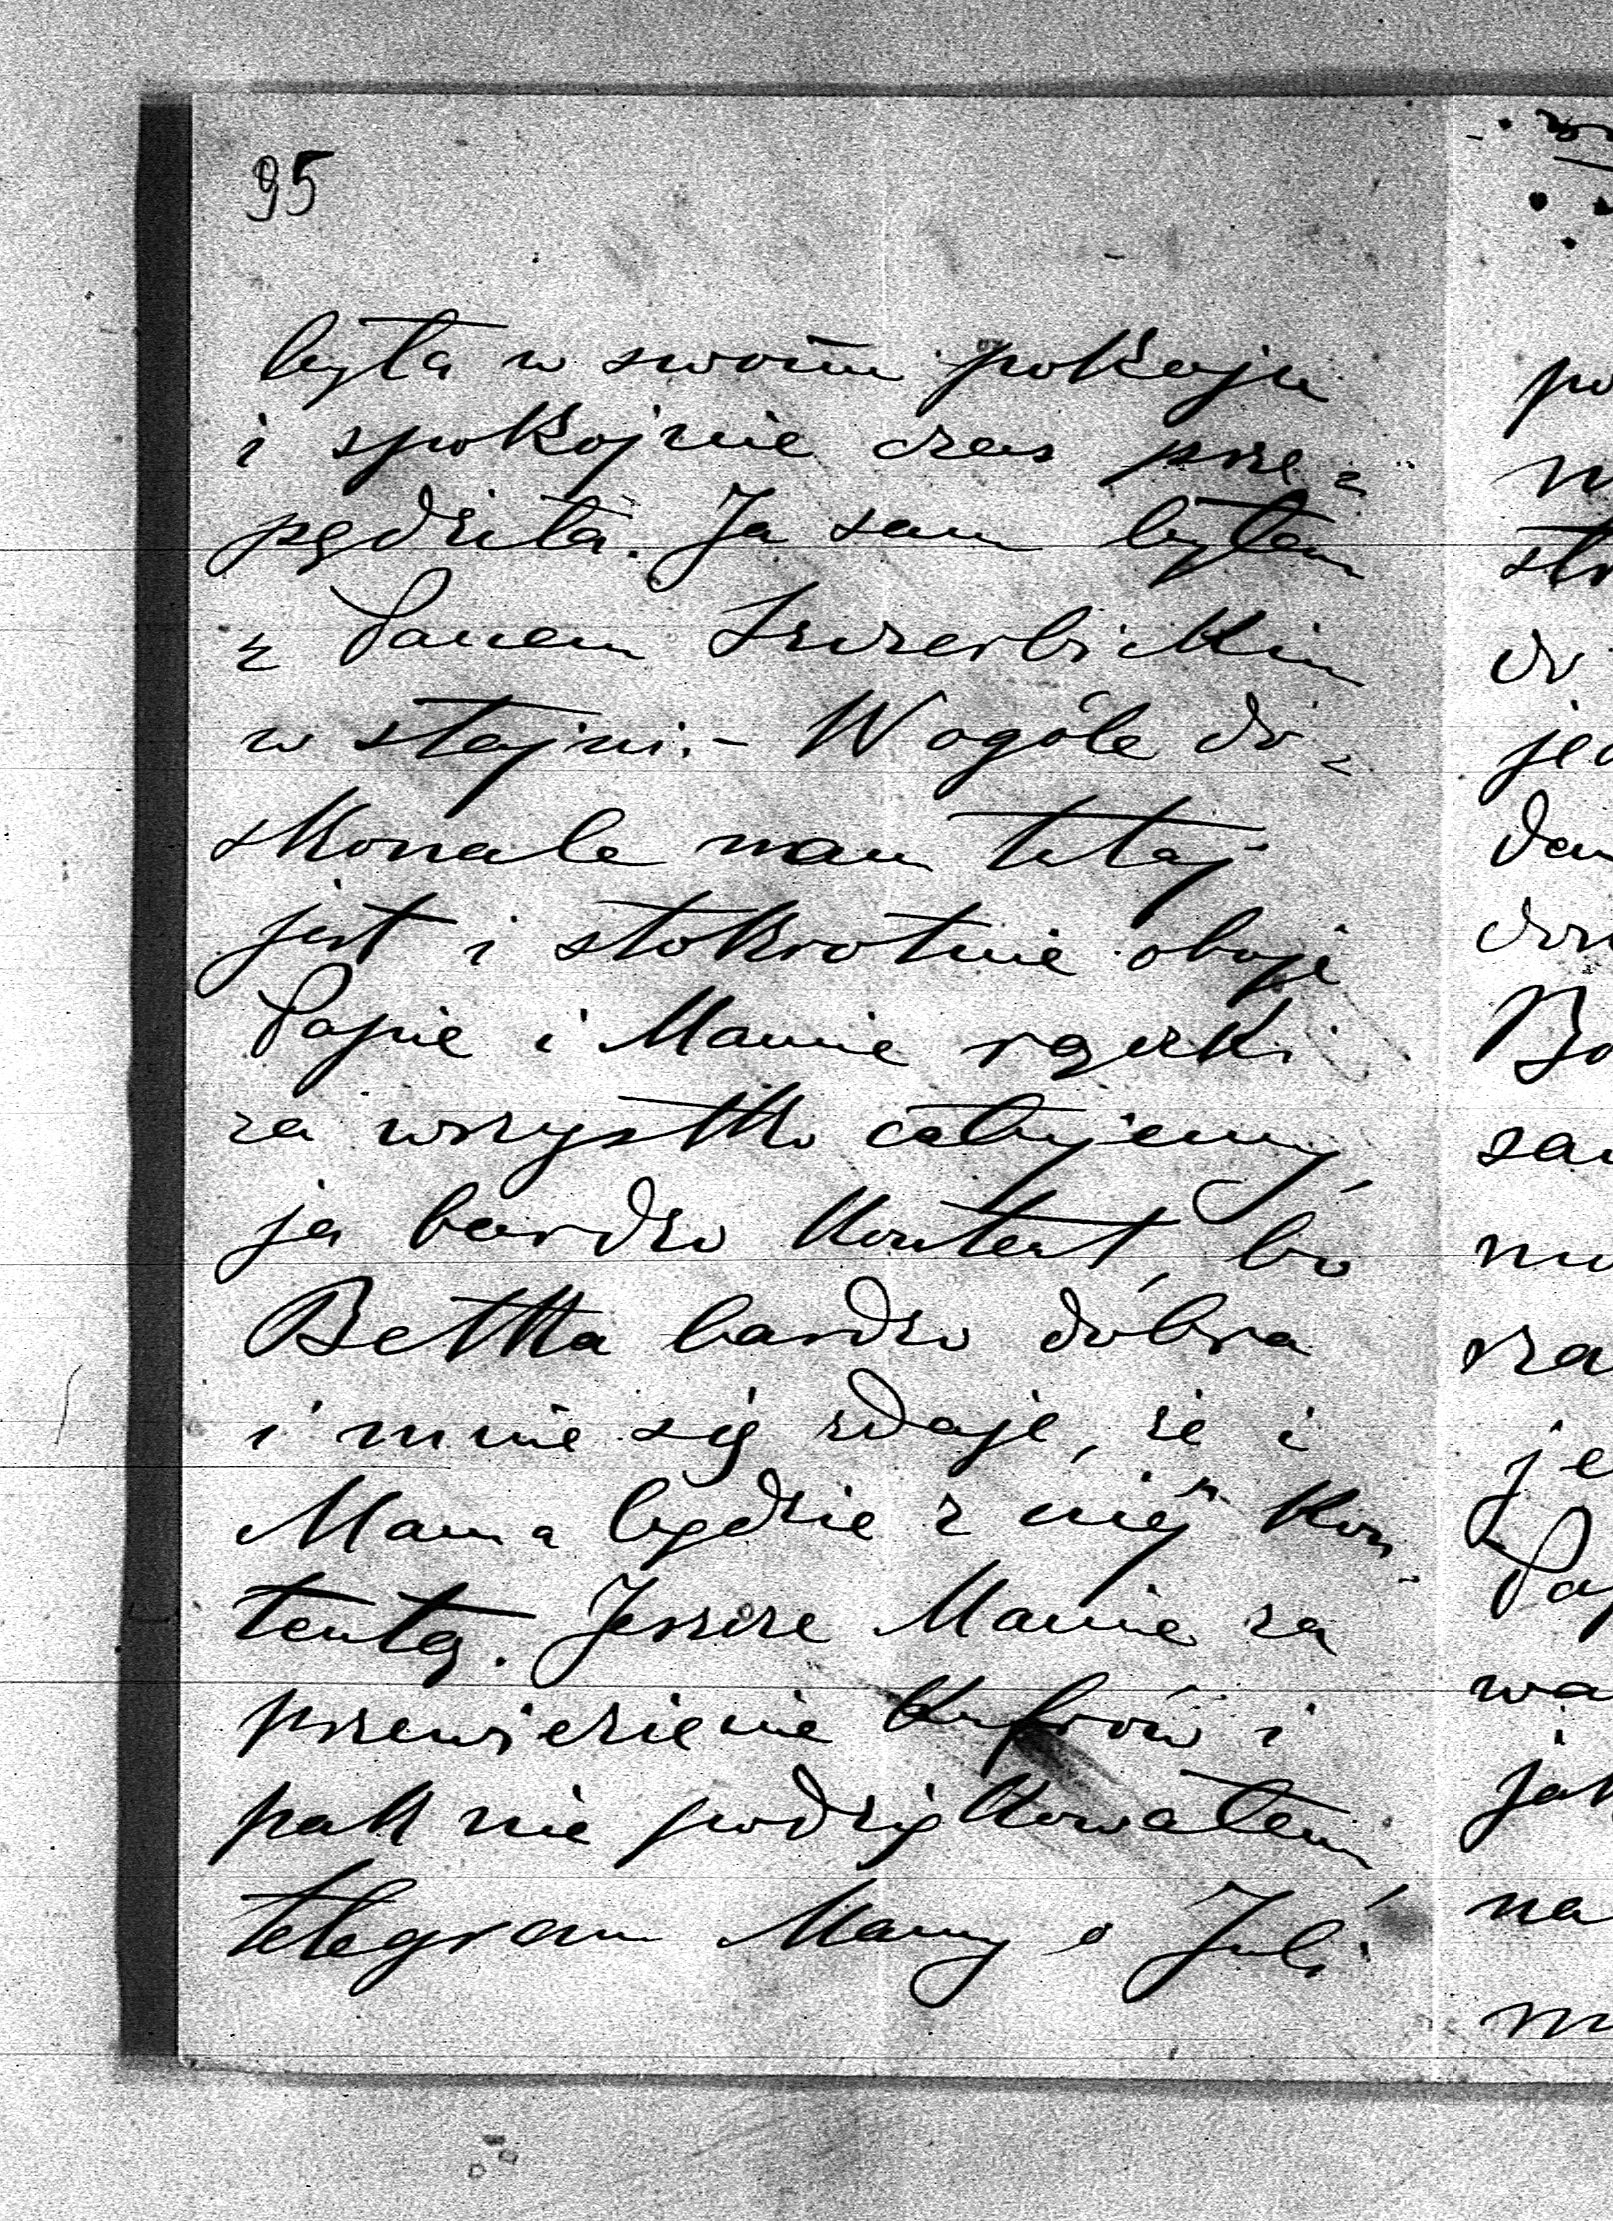 95
była w swoim pokoju
i spokojnie czas prze=
pędziła. Ja sam byłem
z Panem Szczerbickim
w stajni.- W ogóle do=
skonale nam tutaj
jest i stokrotnie oboje
Papie i Mamie rączki
za wszystko całujemy,
ja bardzo kontent, bo
Betka bardzo dobra
i mnie się zdaje, że i
Mama będzie z niej kon-
tentą. Jeszcze Mamie za
przewiezienie kufrów i
pak nie podziękowałem
telegram Mamy o Juli